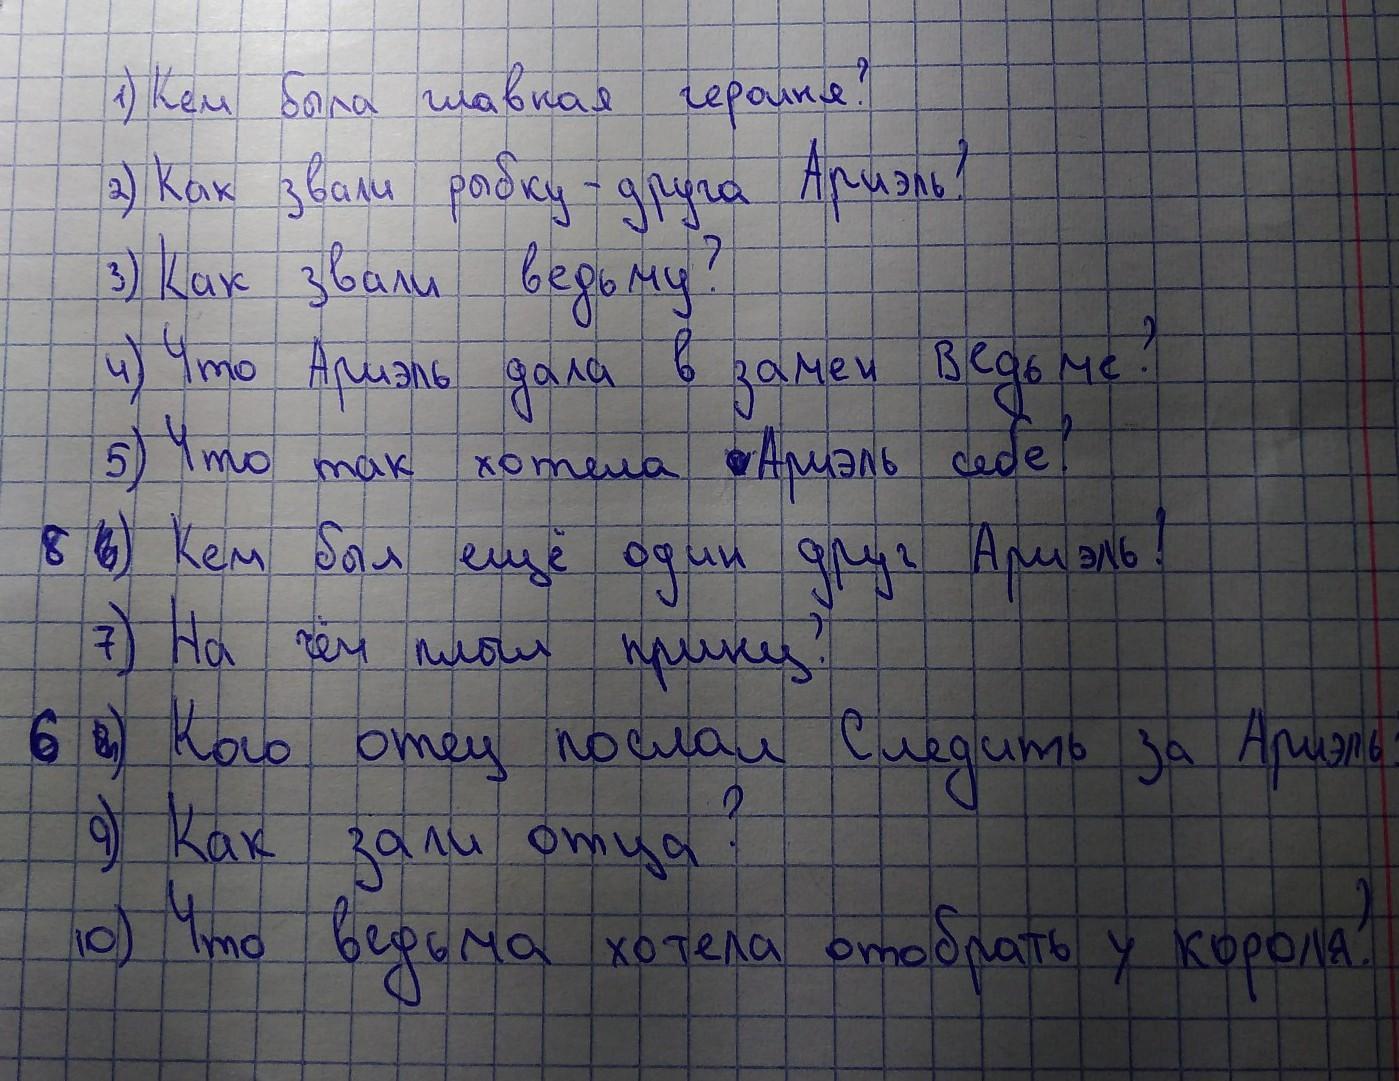 1) Кем была главная героиня?
2) Как звали рыбку-друга Ариэль?
3) Как звали ведьму?
4) Что Ариэль дала в замен Ведьме?
5) Что так хотела Ариэль себе?
8) Кем был ещё один друг Ариэль?
7) На чём плыл принц?
6) Кого отец послал Следить за Ариэль?
9) Как зали отца?
10) Что ведьма хотела отобрать у короля?